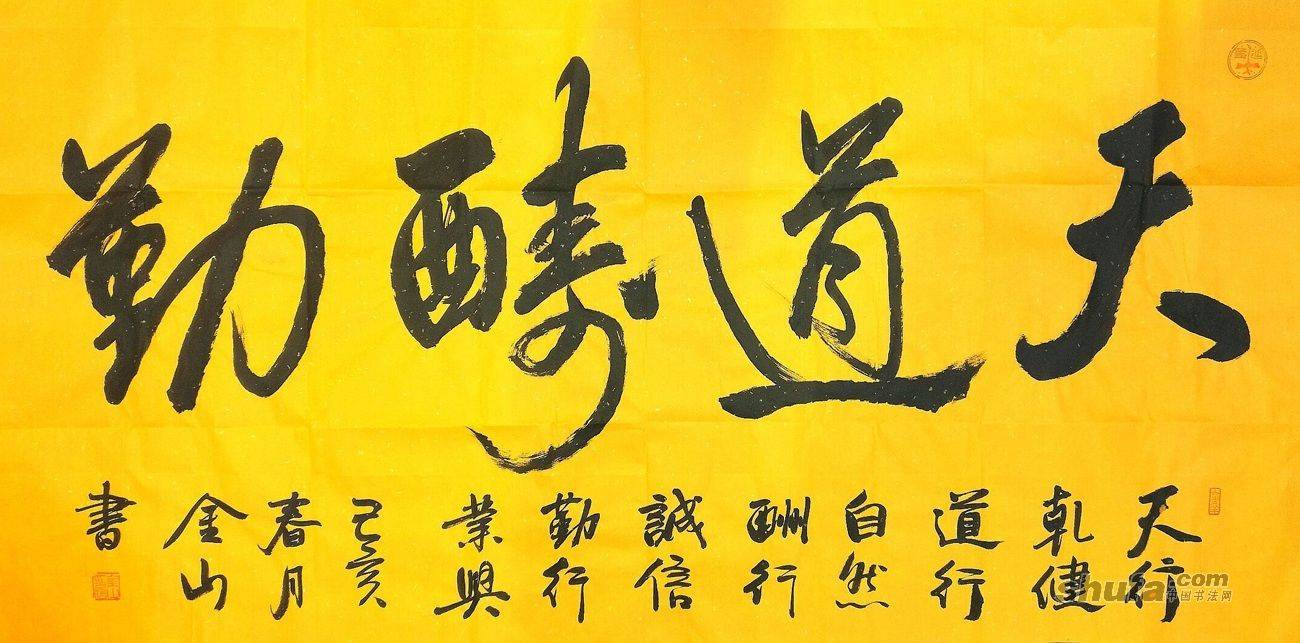 天道酬勤
天行
乾健
道行
自然
酬行
誠信
勤行
業興
己亥
春月
金山
書
shufa.com
中国书法网